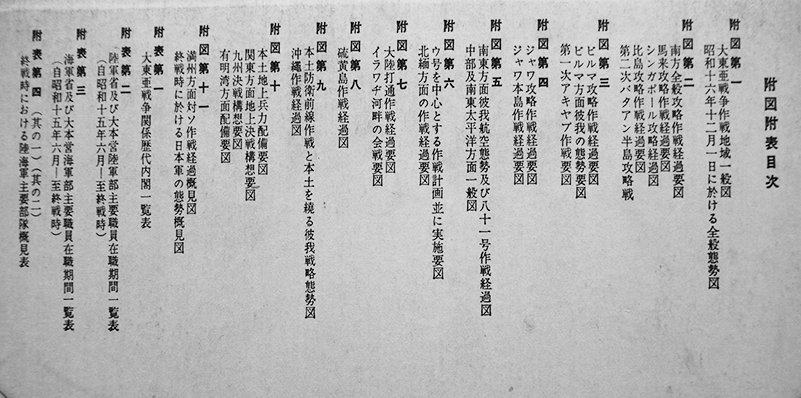 附図附表目次
附図第一
大東亜戦争作戦地域一般図
昭和十六年十二月一日に於ける全般態勢図
附図第二
南方全般攻略作戦経過要図
馬来攻略作戦経過要図
シンガポール攻略経過図
比島攻略作戦経過要図
第二次バタアン半島攻略戦
附図第三
ビルマ攻略作戦経過要図
ビルマ方面彼我の態勢要図
第一次アキャブ作戦要図
附図第四
ジャワ攻略作戦経過要図
ジャワ本島作戦経過要図
附図第五
南東方面彼我航空態勢及び八十一号作戦経過図
中部及南東太平洋方面一般図
附図第六
ウ号を中心とする作戦計画並に実施要図
北緬方面の作戦経過要図
附図第七
大陸打通作戦経過要図
イラワヂ河畔の会戦要図
附図第八
硫黄島作戦経過図
附図第九
本土防衛前縁作戦と本土を繞る彼我戦略態勢図
沖縄作戦経過図
附図第十
本土地上兵力配備要図
関東方面地上決戦構想要図
九州決戦構想要図
有明湾方面配備要図
附図第十一
満州方面対ソ作戦経過概見図
終戦時に於ける日本軍の態勢概見図
附表第一
大東亜戦争関係歴代内閣一覧表
附表第二
陸軍省及び大本営陸軍部主要職員在職期間一覧表
（自昭和十五年六月―至終戦時）
附表第三
海軍省及び大本営海軍部主要職員在職期間一覧表
（自昭和十五年六月―至終戦時）
附表第四（其の一）（其の二）
終戦時における陸海軍主要部隊概見表